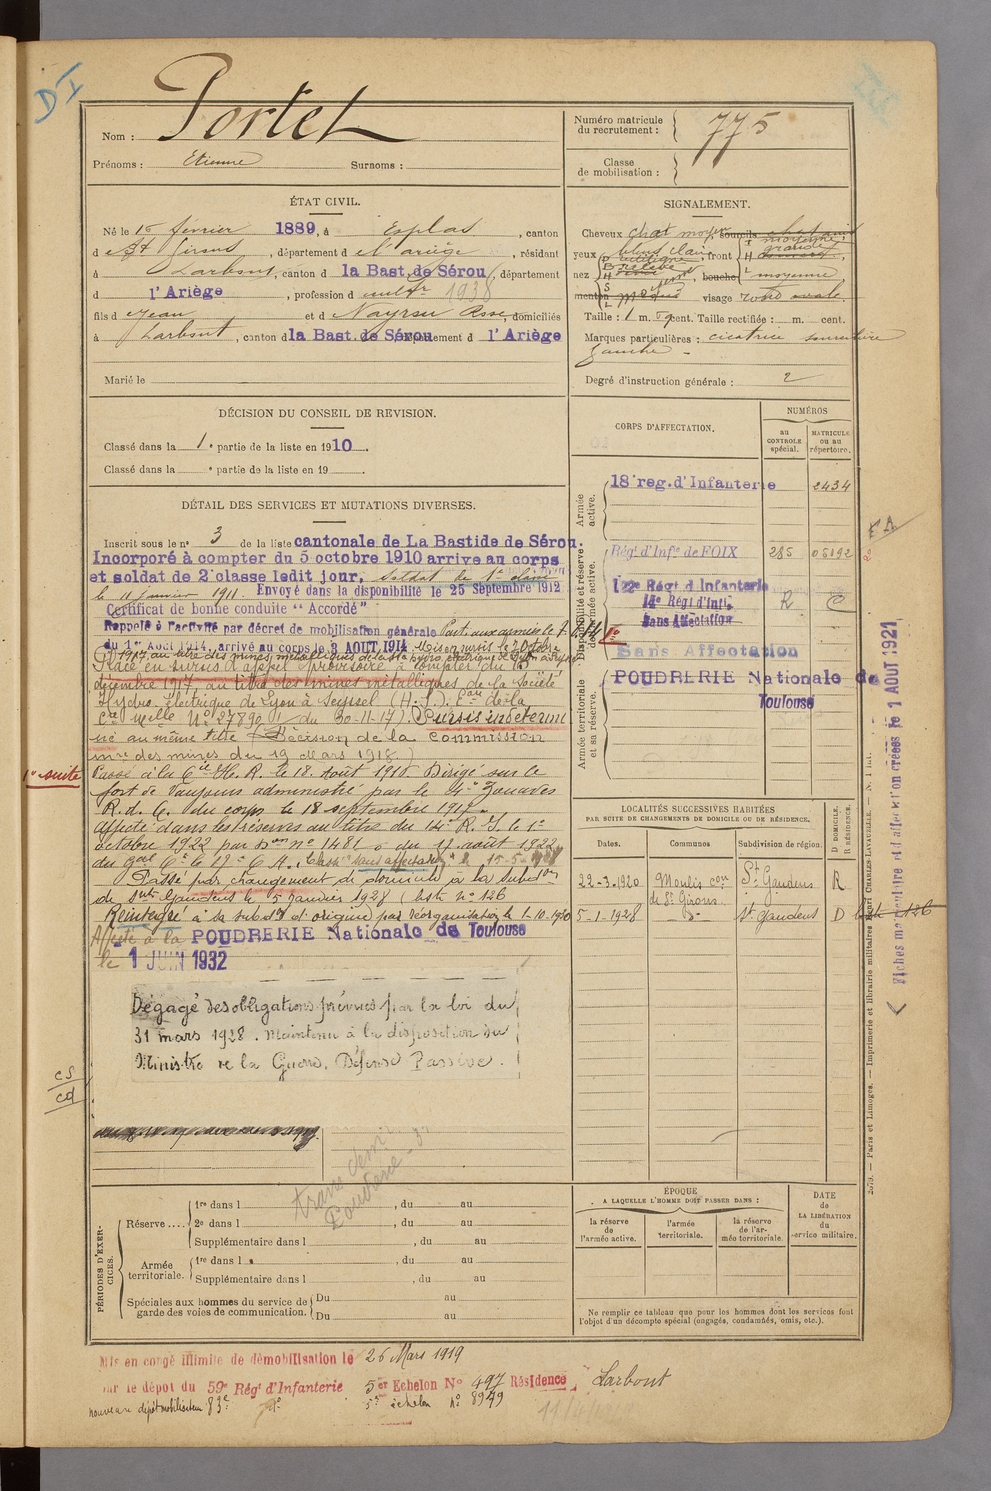 D I
Nom : Portet
Prénoms : Etienne Surnoms :
Numéro matricule du recrutement : 775
Classe de mobilisation :
ÉTAT CIVIL.
Né le 15 février 1889, à Esplas, canton
d e St Girons, département d e l'ariège, résidant
à Larbont, canton d la Bast. de Sérou, département
d l'Ariège, profession d cultr 1938
fils d e Jean et d e , domiciliés
à Larbont, canton d la Bast. de Sérou, département d l'Ariège
Marié le
SIGNALEMENT.
Cheveux chat moy, sourcils chatains
yeux bleus clair, front moyenne grande
nez bouche moyenne
menton visage rond ovale
Taille : 1 m. cent. Taille rectifiée : m. cent.
Marques particulières : cicatrice sourcilière
gauche -
Degré d'instruction générale : 2
DÉCISION DU CONSEIL DE REVISION.
Classé dans la 1e partie de la liste en 1910.
Classé dans la e partie de la liste en 19 .
CORPS D'AFFECTATION.
NUMÉROS
au CONTROLE spécial.
MATRICULE ou au répertoire.
Armée active.
18e reg. d'Infanterie 2434
Disponibilité et réserve de l'armée active.
Régt d'Infie de FOIX 285 05192
Régt d'Infanterie
14e Régt d'Infie R
Sans Affectation
Sans Affectation
Armée territoriale et sa réserve.
POUDRERIE Nationale de
Toulouse
DÉTAIL DES SERVICES ET MUTATIONS DIVERSES.
Inscrit sous le no 3 de la liste cantonale de La Bastide de Sérou.
Incorporé à compter du 5 octobre 1910 arrive au corps
et soldat de 2e classe ledit jour, soldat de 1e classe
le 11 janvier 1911. Envoyé dans la disponibilité le 25 Septembre 1912
Certificat de bonne conduite "Accordé"
Rappelé à l'activité par décret de mobilisation générale Parti aux armées le 7.
du 1er Août 1914, arrivé au corps le 3 AOUT 1914 Mis en sursis le 20 octobre
1917 au titre des mines métalliques de la Sté hydro électrique de Lyon à Seyssel
Placé en sursis d'appel provisoire à compter du 13
décembre 1917, au titre des mines métalliques de la Société
Hydro. Électrique de Lyon à Seyssel (H.-S.). Con de la
Cie mlle No 27890 du 30-11-17). Sursis indétermi
né au même titre (Décision de la Commission
mre des mines du 19 Mars 1918.)
1e suite
Passé à la 6e Cie H. R. le 18 août 1918. Dirigé sur le
fort de Vaujours administré par le 4e Zouaves
R. d. C. du corps le 18 septembre 1917.
Affecté dans les réserves au titre du 14e R. I. le 1er
octobre 1922 par Don no 1481 du 17 août 1922
du gal Ct le 17e C A. Classé "sans affectation" le 15-5-1928
Passé par changement de domicile à la subdon
de Snt Gaudens le 5 janvier 1928 (liste no 126
Réintégré à la subdon d'origine par réorganisation le 1-10-1930
Affecté à la POUDRERIE Nationale de Toulouse
le 1 JUIN 1932
Dégagé des obligations prévues par la loi du
31 mars 1928. Maintenu à la disposition du
Ministre de la Guerre, Défense Passive.
CS
cd
LOCALITÉS SUCCESSIVES HABITÉES
PAR SUITE DE CHANGEMENTS DE DOMICILE OU DE RÉSIDENCE.
Dates. Communes. Subdivision de région. D DOMICILE. R RÉSIDENCE.
22-3-1920 Moulis con de St Girons. St Gaudens R
5-1-1928 do St Gaudens D liste 126
Fiches matriculaire et d'affectation créées le 1 AOUT 1921
2579. — Paris et Limoges. — Imprimerie et librairie militaires Henri CHARLES-LAVAUZELLE.
PÉRIODES D'EXERCICES.
Réserve....
1re dans l , du au
2e dans l , du au
Supplémentaire dans l , du au
Armée territoriale.
1re dans l , du au
Supplémentaire dans l , du au
Spéciales aux hommes du service de garde des voies de communication.
Du au
Du au
ÉPOQUE
A LAQUELLE L'HOMME DOIT PASSER DANS :
la réserve de l'armée active.
l'armée territoriale.
la réserve de l'armée territoriale.
DATE DE LA LIBÉRATION du service militaire.
Ne remplir ce tableau que pour les hommes dont les services font
l'objet d'un décompte spécial (engagés, condamnés, omis, etc.).
Mis en congé illimité de démobilisation le 26 Mars 1919
par le dépôt du 59e Régt d'Infanterie 5er Echelon No 497 Résidence Larbont
nouveau dépôt mobilisateur 83e do 5e échelon No 8949